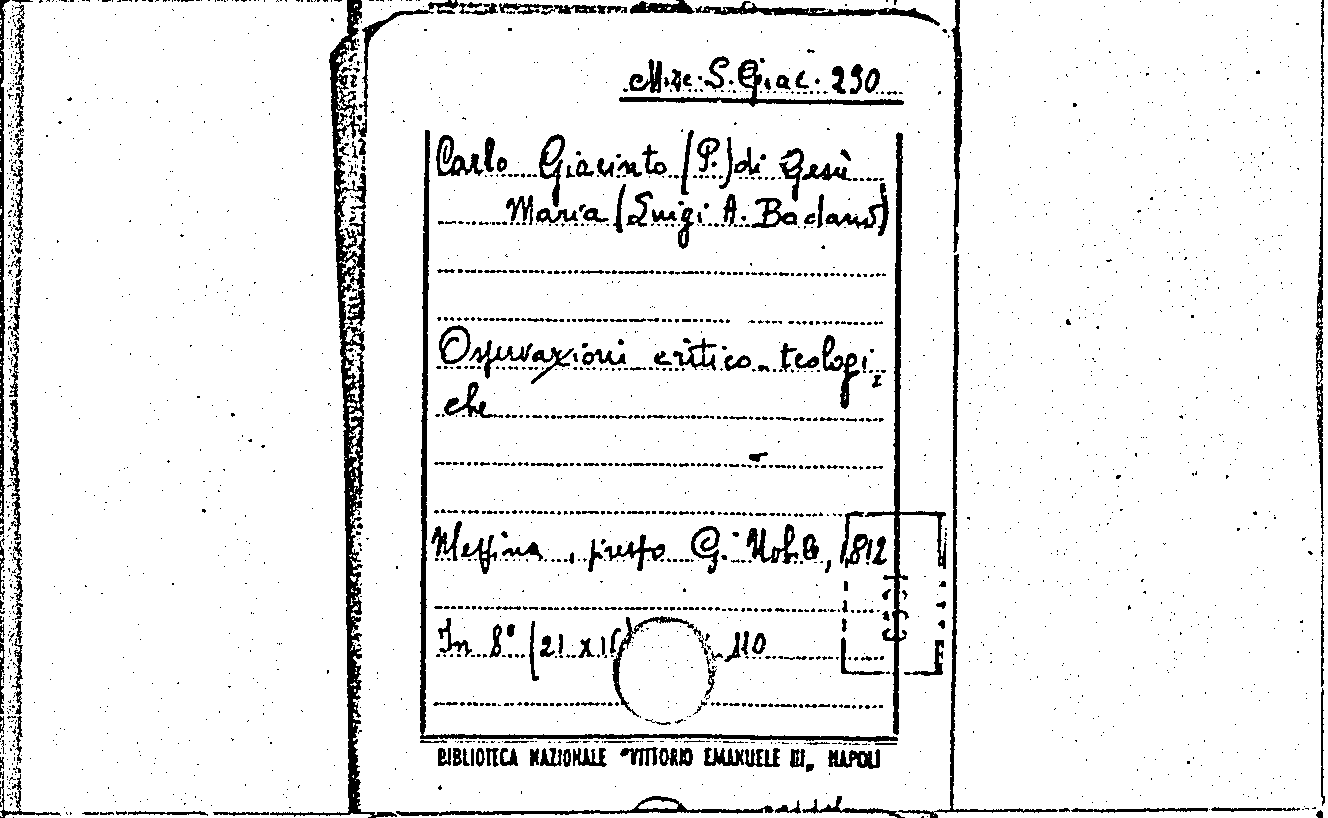 Misc. S. Giac. 230
Carlo Giacinto (P.) di Gesù
Maria (Luigi A. Badanò)
Osservazioni critico-teologi
che
Messina, presso G. Nobolo, 1812
In 8° (21 x 16) 110
BIBLIOTECA NAZIONALE "VITTORIO EMANUELE III„ NAPOLI